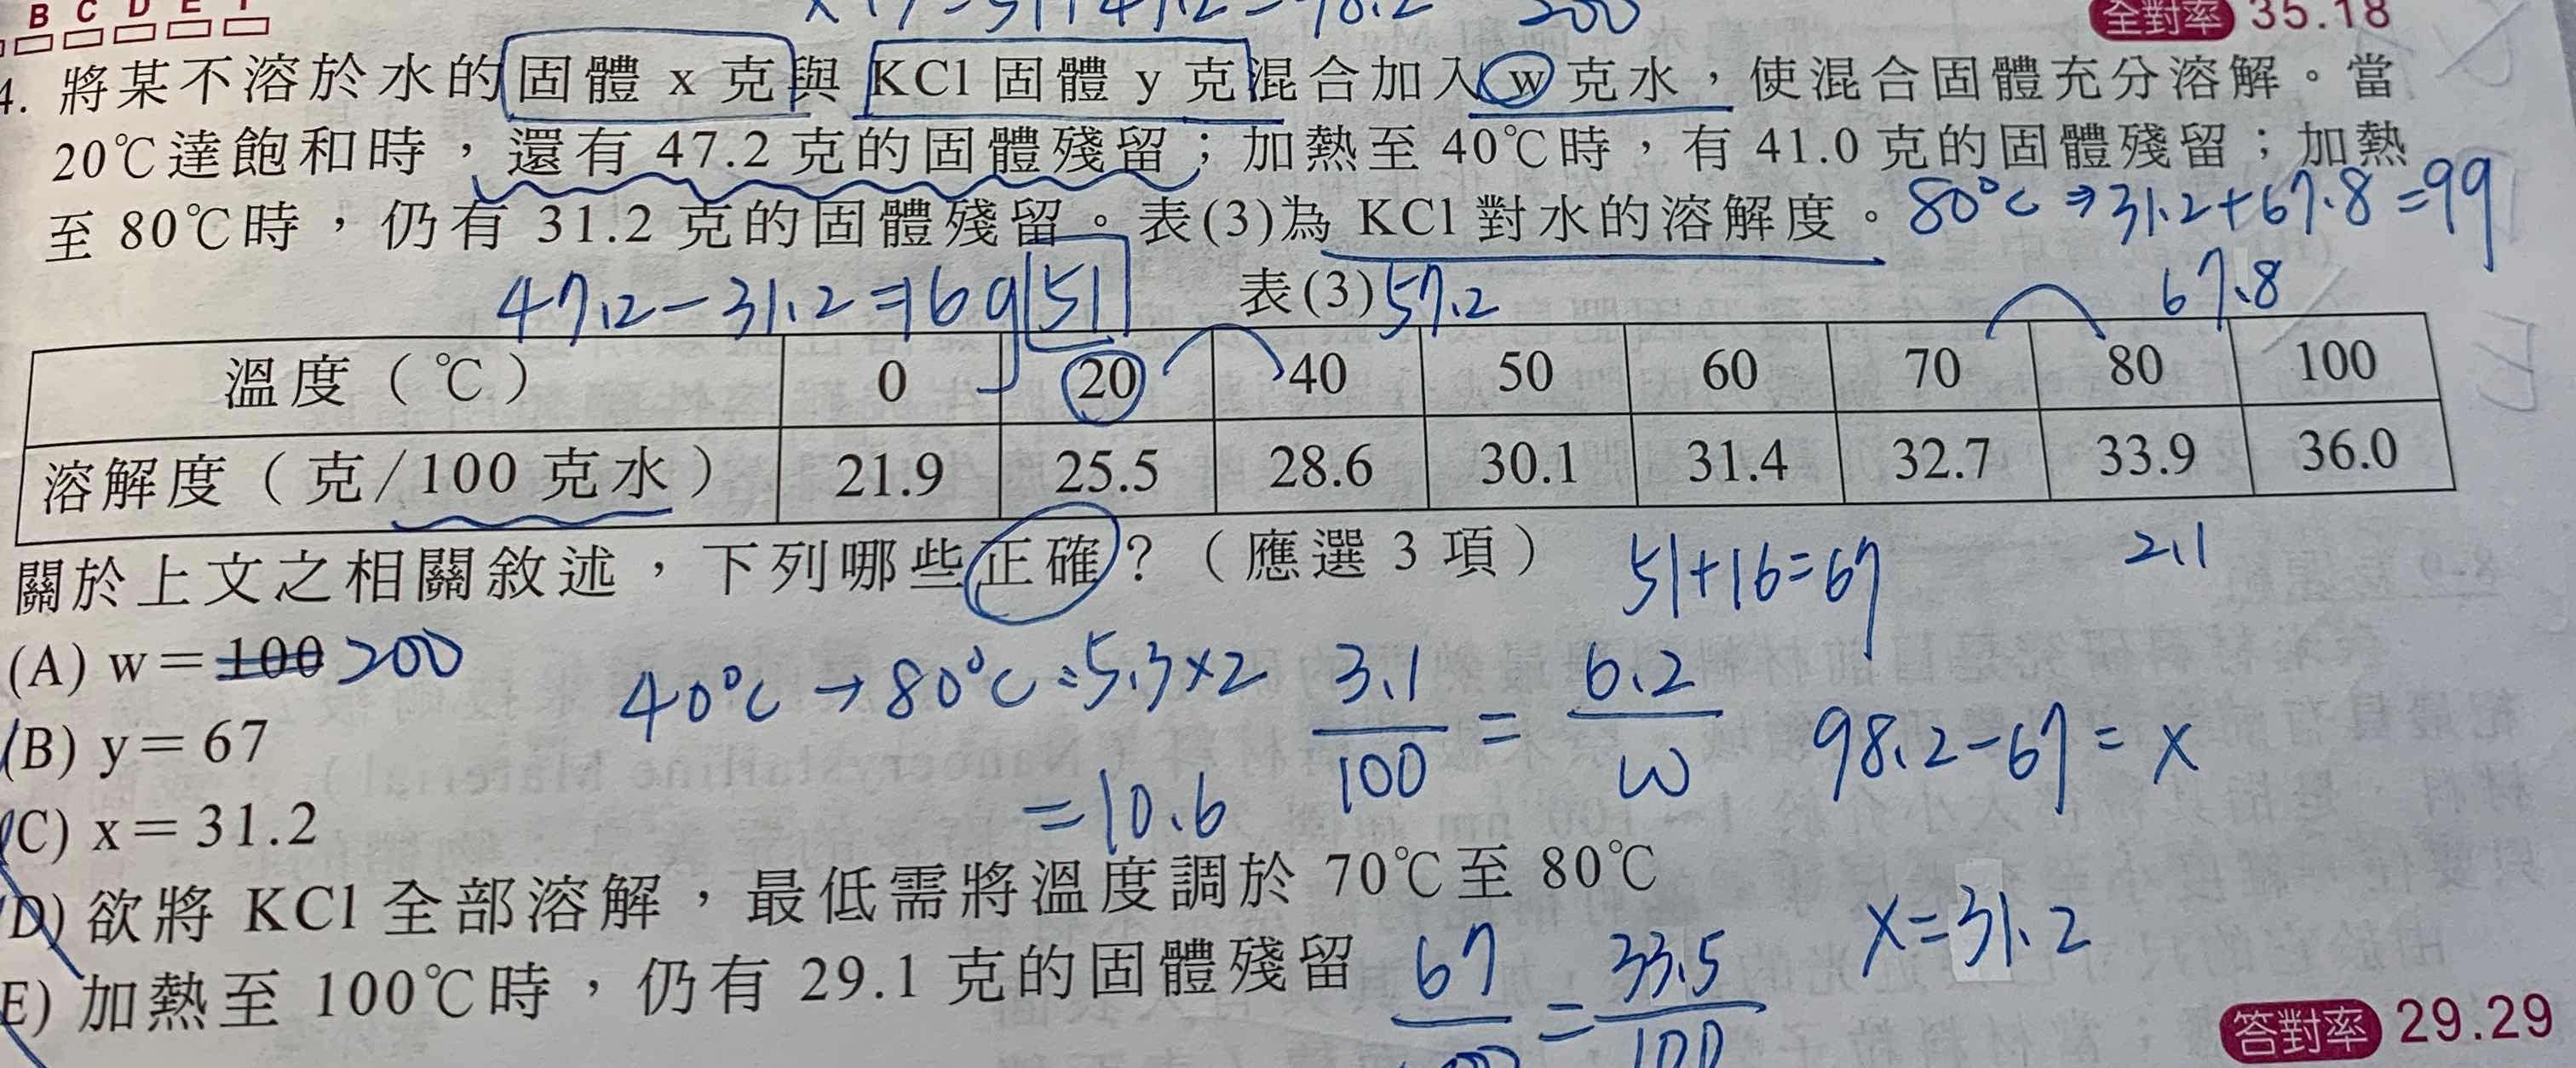 B C D E F
x+y=51+47.2=98.2 200
全對率 35.18
4. 將某不溶於水的固體 x 克與 KCl 固體 y 克混合加入 w 克水，使混合固體充分溶解。當
20℃達飽和時，還有 47.2 克的固體殘留；加熱至 40℃時，有 41.0 克的固體殘留；加熱
至 80℃時，仍有 31.2 克的固體殘留。表(3)為 KCl 對水的溶解度。 80°C ⇒ 31.2+67.8=99
47.2-31.2=16g 51 表(3) 57.2 67.8
溫度（℃） 0 20 40 50 60 70 80 100
溶解度（克/100 克水） 21.9 25.5 28.6 30.1 31.4 32.7 33.9 36.0
關於上文之相關敘述，下列哪些正確？（應選 3 項） 51+16=67 2.1
(A) w＝100 200
40°C → 80°C : 5.3×2 3.1/100 = 6.2/w 98.2-67=x
(B) y＝67
=10.6
(C) x＝31.2
(D) 欲將 KCl 全部溶解，最低需將溫度調於 70℃至 80℃
x=31.2
(E) 加熱至 100℃時，仍有 29.1 克的固體殘留 67 = 33.5/100
答對率 29.29